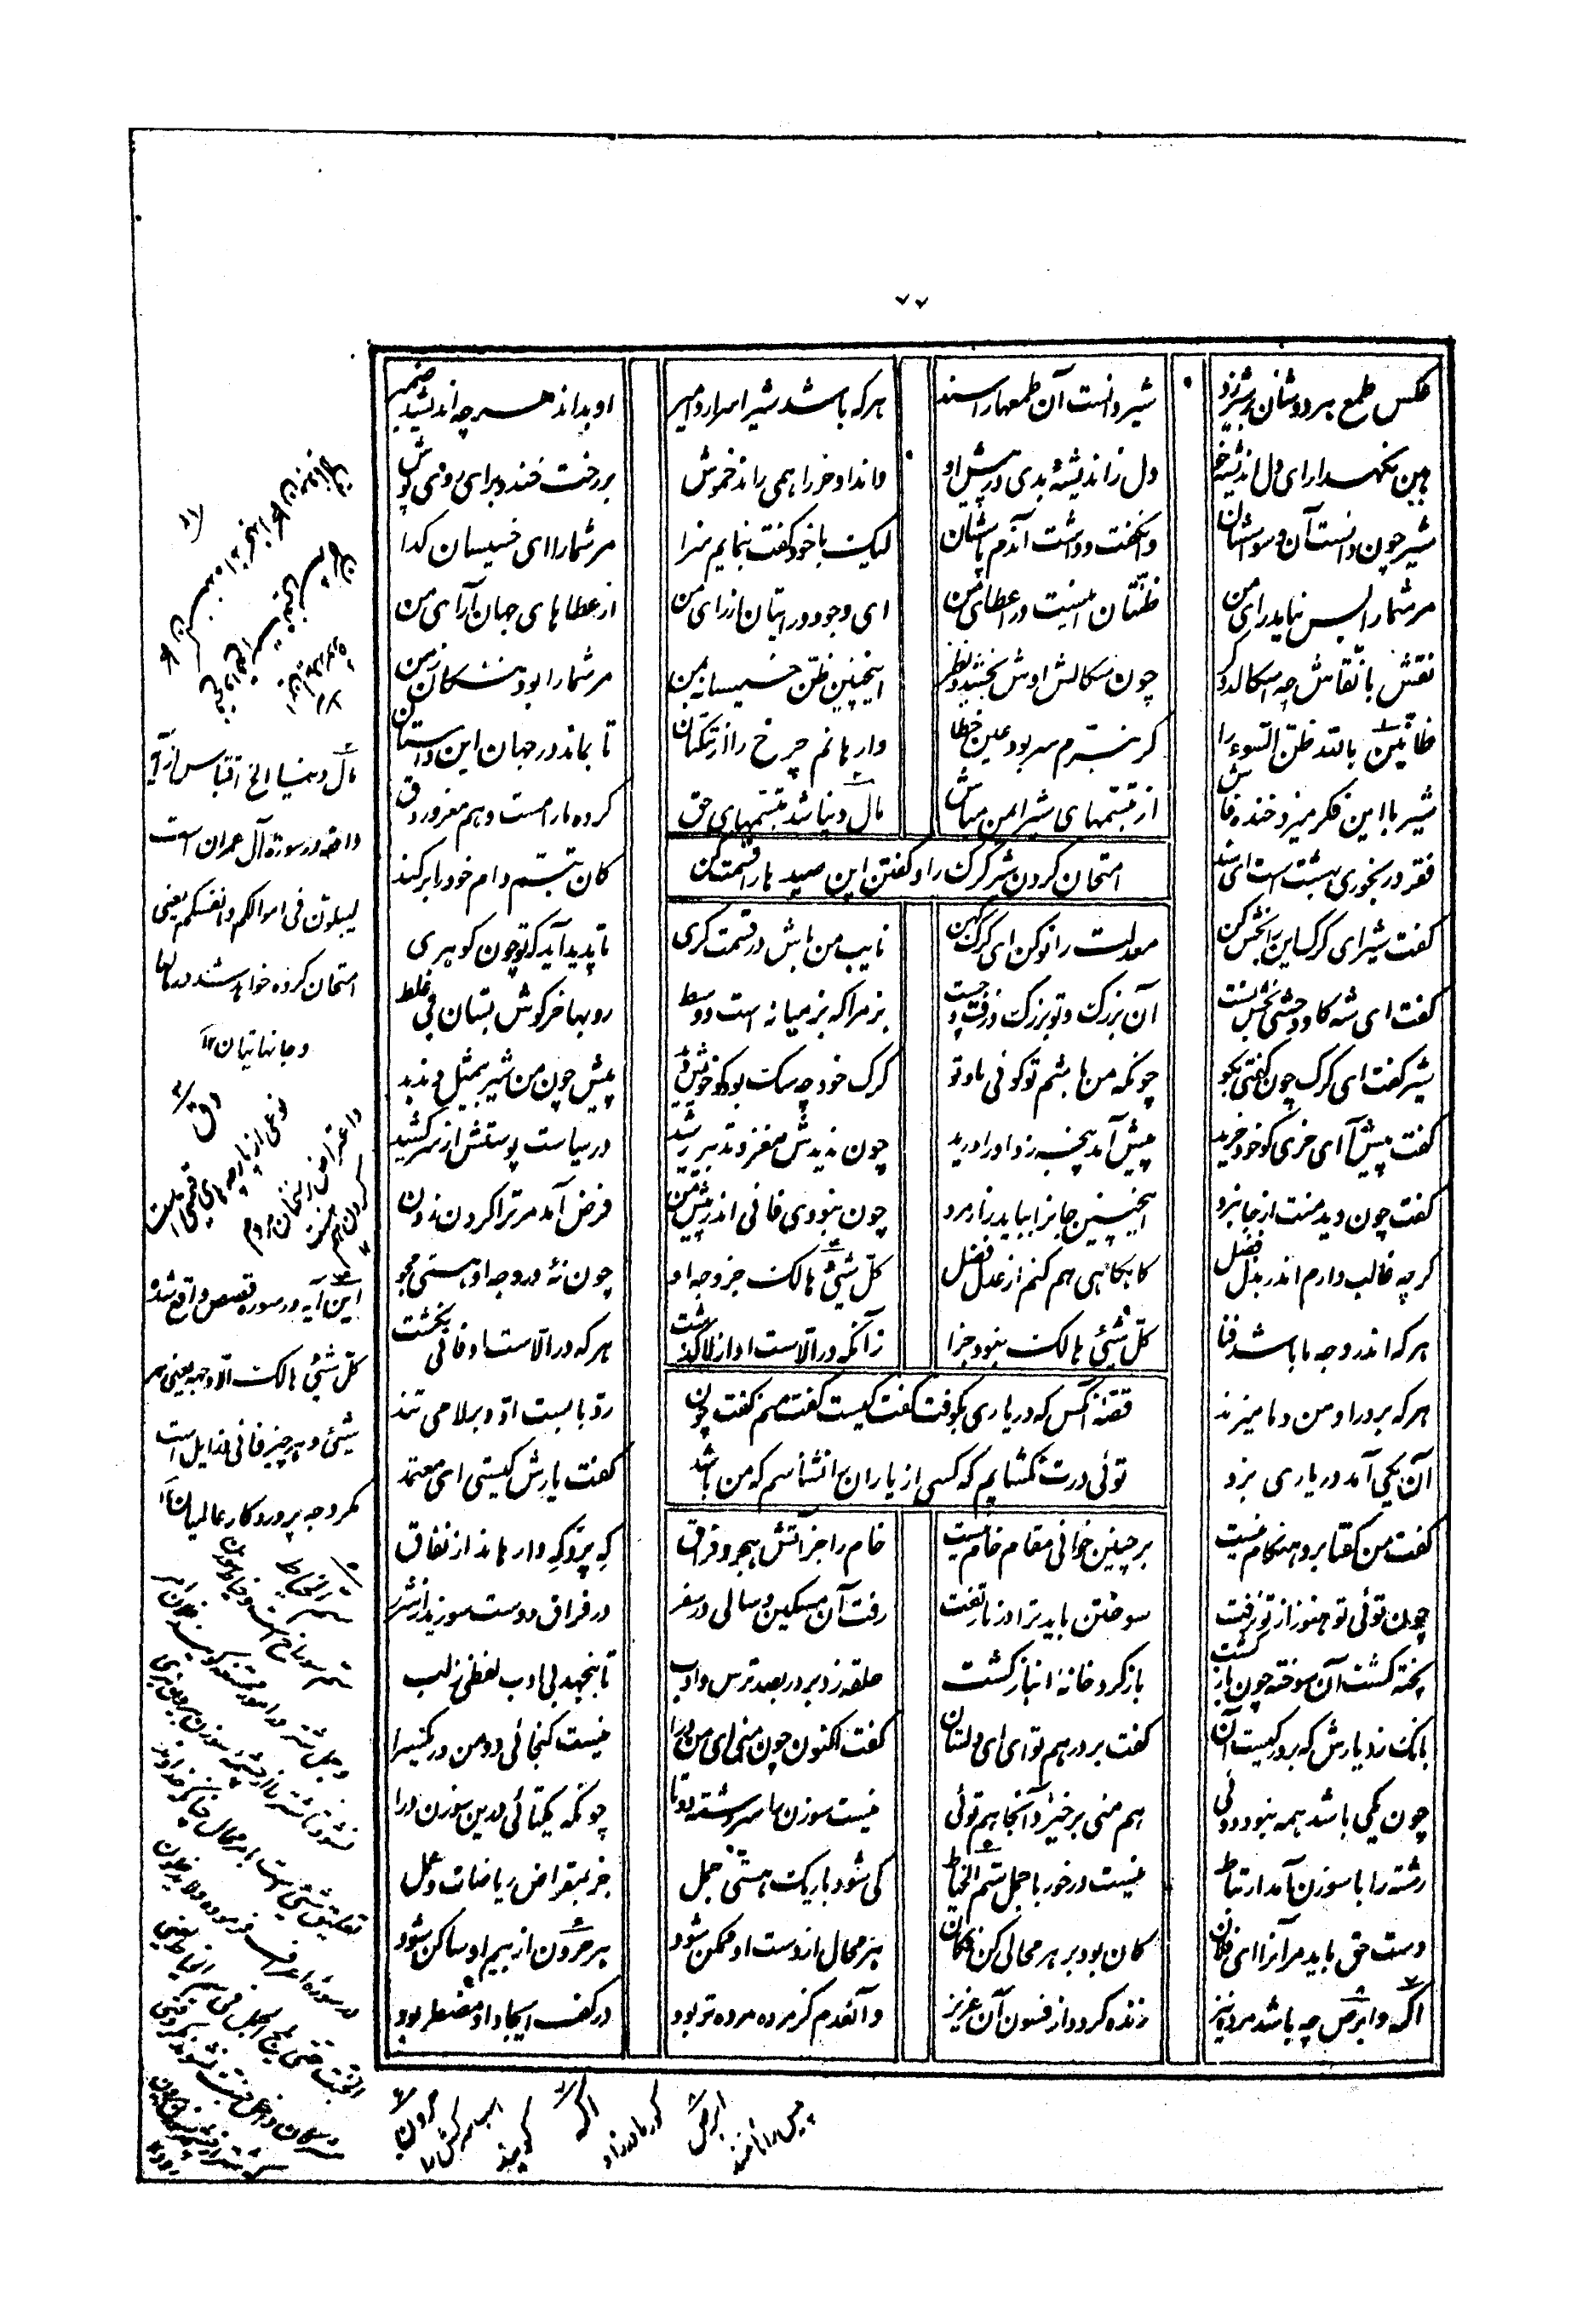 ۷۷
عکس طمع هر دوشان بر شیر زد شیر دانست آن طمعها را سند هر که باشد شیر اسرار و امیر او بداند هر چه اندیشد ضمیر
هین نگهدار ای دل اندیشه خو دل ز اندیشهٔ بدی در پیش او داند او خر را همی راند خموش بر رخت خندد برای روی پوش
شیر چون دانست آن وسواسشان وانگفت و داشت آندم پاسشان لیک با خود گفت بنمایم سزا مر شما را ای خسیسان گدا
مر شما را بس نیاید رای من ظنتان اینست در اعطای من ای وجود و رایتان از رای من از عطاهای جهان آرای من
نقش با نقاش چه اسکالد دگر چون سکالش اوش بخشید و نظر اینچنین ظن خسیسانه بمن مر شما را بود ننگان زمن
ظانین بالله ظن السوء را گر نبرم سر بود عین خطا وارهانم چرخ را از ننگتان تا بماند در جهان این داستان
شیر با این فکر میزد خنده فاش از تبسمهای شیر ایمن مباش مال دنیا شد تبسمهای حق کرده ما را مست و مغرور و دق
فقر و رنجوری بهشت است ای سند کان تبسم دام خود را بر کند
امتحان کردن شیر گرگ را و گفتن این صیدها را قسمت کن
گفت شیر ای گرگ این را بخش کن معدلت را نو کن ای گرگ کهن نایب من باش در قسمت گری تا پدید آید که تو چون گوهری
گفت ای شه گاو وحشی بخش تست آن بزرگ و تو بزرگ و زفت و چست بز مرا که بز میانه است و وسط روبها خرگوش بستان بی غلط
شیر گفت ای گرگ چون گفتی بگو چونکه من باشم تو گوئی ما و تو گرگ خود چه سگ بود کو خویش دید پیش چون من شیر بیمثل و ندید
گفت پیش آ ای خری کو خود خرید پیش آمد پنجه زد او را درید چون ندیدش مغز و تدبیر رشید در سیاست پوستش از سر کشید
گفت چون دید منت از جا نبرد اینچنین جانرا بباید زار مرد چون نبودی فانی اندر پیش من فرض آمد مر ترا گردن زدن
گر چه غالب دارم اندر بذل فضل گاهگاهی هم کنم از عدل فصل کل شیئ هالک جز وجه او چون نهٔ در وجه او هستی مجو
هر که اندر وجه ما باشد فنا کل شیئ هالک نبود جزا زآنکه در الاست او از لا گذشت هر که در الاست او فانی نگشت
هر که بر در او من و ما میزند رد بابست او و بر لا می تند
قصه آنکس که در یاری بکوفت گفت کیست گفت منم گفت چون
توئی درت نگشایم که کسی از یاران را نشناسم که من باشد
آن یکی آمد در یاری بزد گفت یارش کیستی ای معتمد
گفت من گفتا برو هنگام نیست بر چنین خوانی مقام خام نیست خام را جز آتش هجر و فراق که پزد که وارهاند از نفاق
چون توئی تو هنوز از تو نرفت سوختن باید ترا در نار تفت رفت آن مسکین و سالی در سفر در فراق دوست سوزید از شرر
پخته گشت آن سوخته چون باز گشت باز گرد خانهٔ انباز گشت حلقه زد بر در بصد ترس و ادب تا نجهد بی ادب لفظی ز لب
بانگ زد یارش که بر در کیست آن گفت بر در هم توای ای دلستان گفت اکنون چون منی ای من درآ نیست گنجائی دو من در یکسرا
چون یکی باشد همه نبود دوئی هم منی برخیزد آنجا هم توئی نیست سوزن را سر رشته دوتا چونکه یکتائی درین سوزن درا
رشته را با سوزن آمد ارتباط نیست در خور با جمل سم الخیاط کی شود باریک هستی جمل جز بمقراض ریاضات و عمل
دست حق باید مر آنرا ای فلان کان بود بر هر محالی کن فکان هر محال از دست او ممکن شود هر حرون از بیم او ساکن شود
اکمه و ابرص چه باشد مرده نیز زنده گردد از فسون آن عزیز و آنعدم کز مرده مرده تر بود در کف ایجاد او مضطر بود
مال دنیا الخ اقتباس از آیه
واقعه در سورهٔ آل عمران است
لیبلون فی اموالکم و انفسکم یعنی
امتحان کرده خواهید شد در مالها
و جانهاتان ۱۲
دق
نوعی از پارچه های قیمتی است
این آیه در سوره قصص واقع شده
کل شیئ هالک الا وجهه یعنی هر
شیئی و هر چیز فانی و زایل است
مگر وجه پروردگار عالمیان ۱۲
سم الخیاط
حرون
اسب سرکش
اکمه
کور مادرزاد
ابرص
پیس را نامند